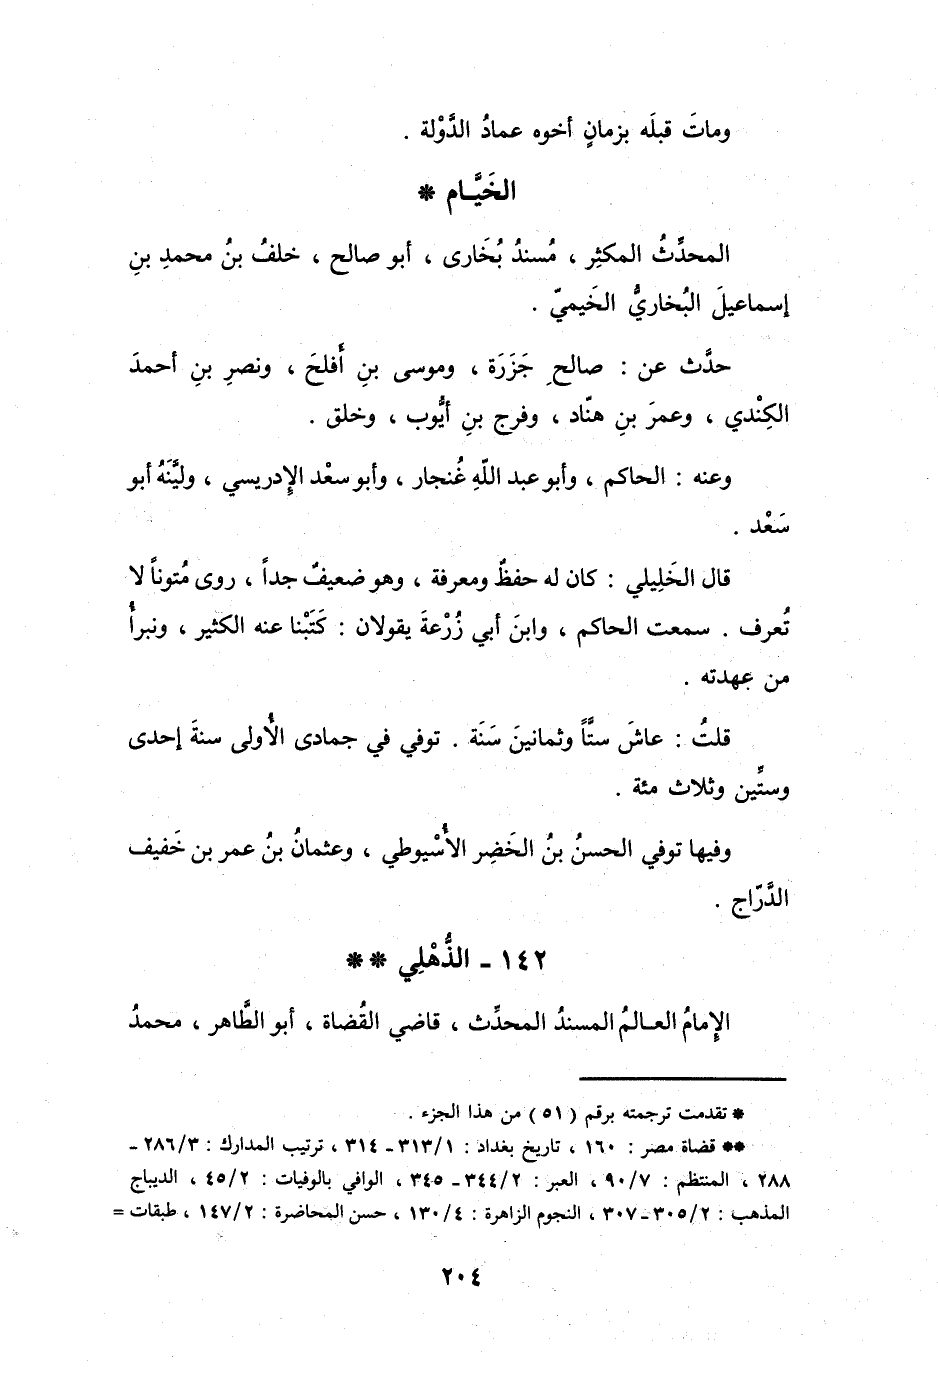 وماتَ قبلَه بزمانٍ أخوه عمادُ الدَّوْلة .
الخَيَّـام *
المحدِّثُ المكثِر ، مُسندُ بُخَارى ، أبو صالح ، خلفُ بنُ محمدِ بنِ
إسماعيلَ البُخاريُّ الخَيميّ .
حدَّث عن : صالحِ جَزَرَة ، وموسى بنِ أَفلحَ ، ونصرِ بنِ أحمدَ
الكِنْدي ، وعمرَ بنِ هنّاد ، وفرج بنِ أيُّوب ، وخلق .
وعنه : الحاكم ، وأبو عبد اللّهِ غُنجار ، وأبو سعْد الإِدريسي ، وليَّنَهُ أبو
سَعْد .
قال الخَلِيلي : كان له حفظٌ ومعرفة ، وهو ضعيفٌ جداً ، روى مُتوناً لا
تُعرف . سمعت الحاكم ، وابنَ أبي زُرْعةَ يقولان : كَتَبْنا عنه الكثير ، ونبرأُ
من عهدته .
قلتُ : عاشَ ستَّاً وثمانينَ سَنَة . توفي في جمادى الأُولى سنةَ إحدى
وستِّين وثلاث مئة .
وفيها توفي الحسنُ بنُ الخَضِر الأُسْيوطي ، وعثمانُ بنُ عمر بن خَفيف
الدَّرّاج .
١٤٢ ـ الذُّهْلِي **
الإِمامُ العـالمُ المسندُ المحدِّث ، قاضي القُضاة ، أبو الطَّاهر ، محمدُ
* تقدمت ترجمته برقم ( ٥١ ) من هذا الجزء .
** قضاة مصر : ١٦٠ ، تاريخ بغداد : ٣١٣/١ ـ ٣١٤ ، ترتيب المدارك : ٢٨٦/٣ ـ
٢٨٨ ، المنتظم : ٩٠/٧ ، العبر : ٣٤٤/٢ ـ ٣٤٥ ، الوافي بالوفيات : ٤٥/٢ ، الديباج
المذهب : ٣٠٥/٢ ـ ٣٠٧ ، النجوم الزاهرة : ١٣٠/٤ ، حسن المحاضرة : ١٤٧/٢ ، طبقات =
٢٠٤